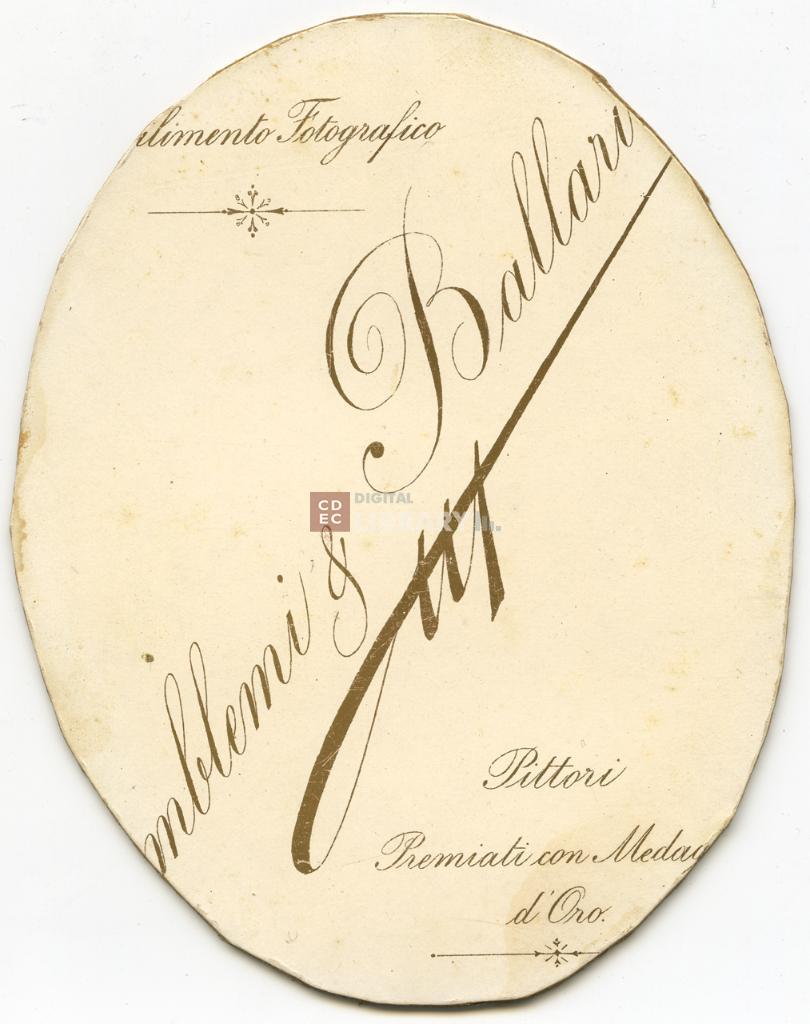 ilimento Fotografico
mblemi & Ballari
Pittori
Premiati con Medag
d'Oro.
CD
EC
DIGITAL
LIBRARY